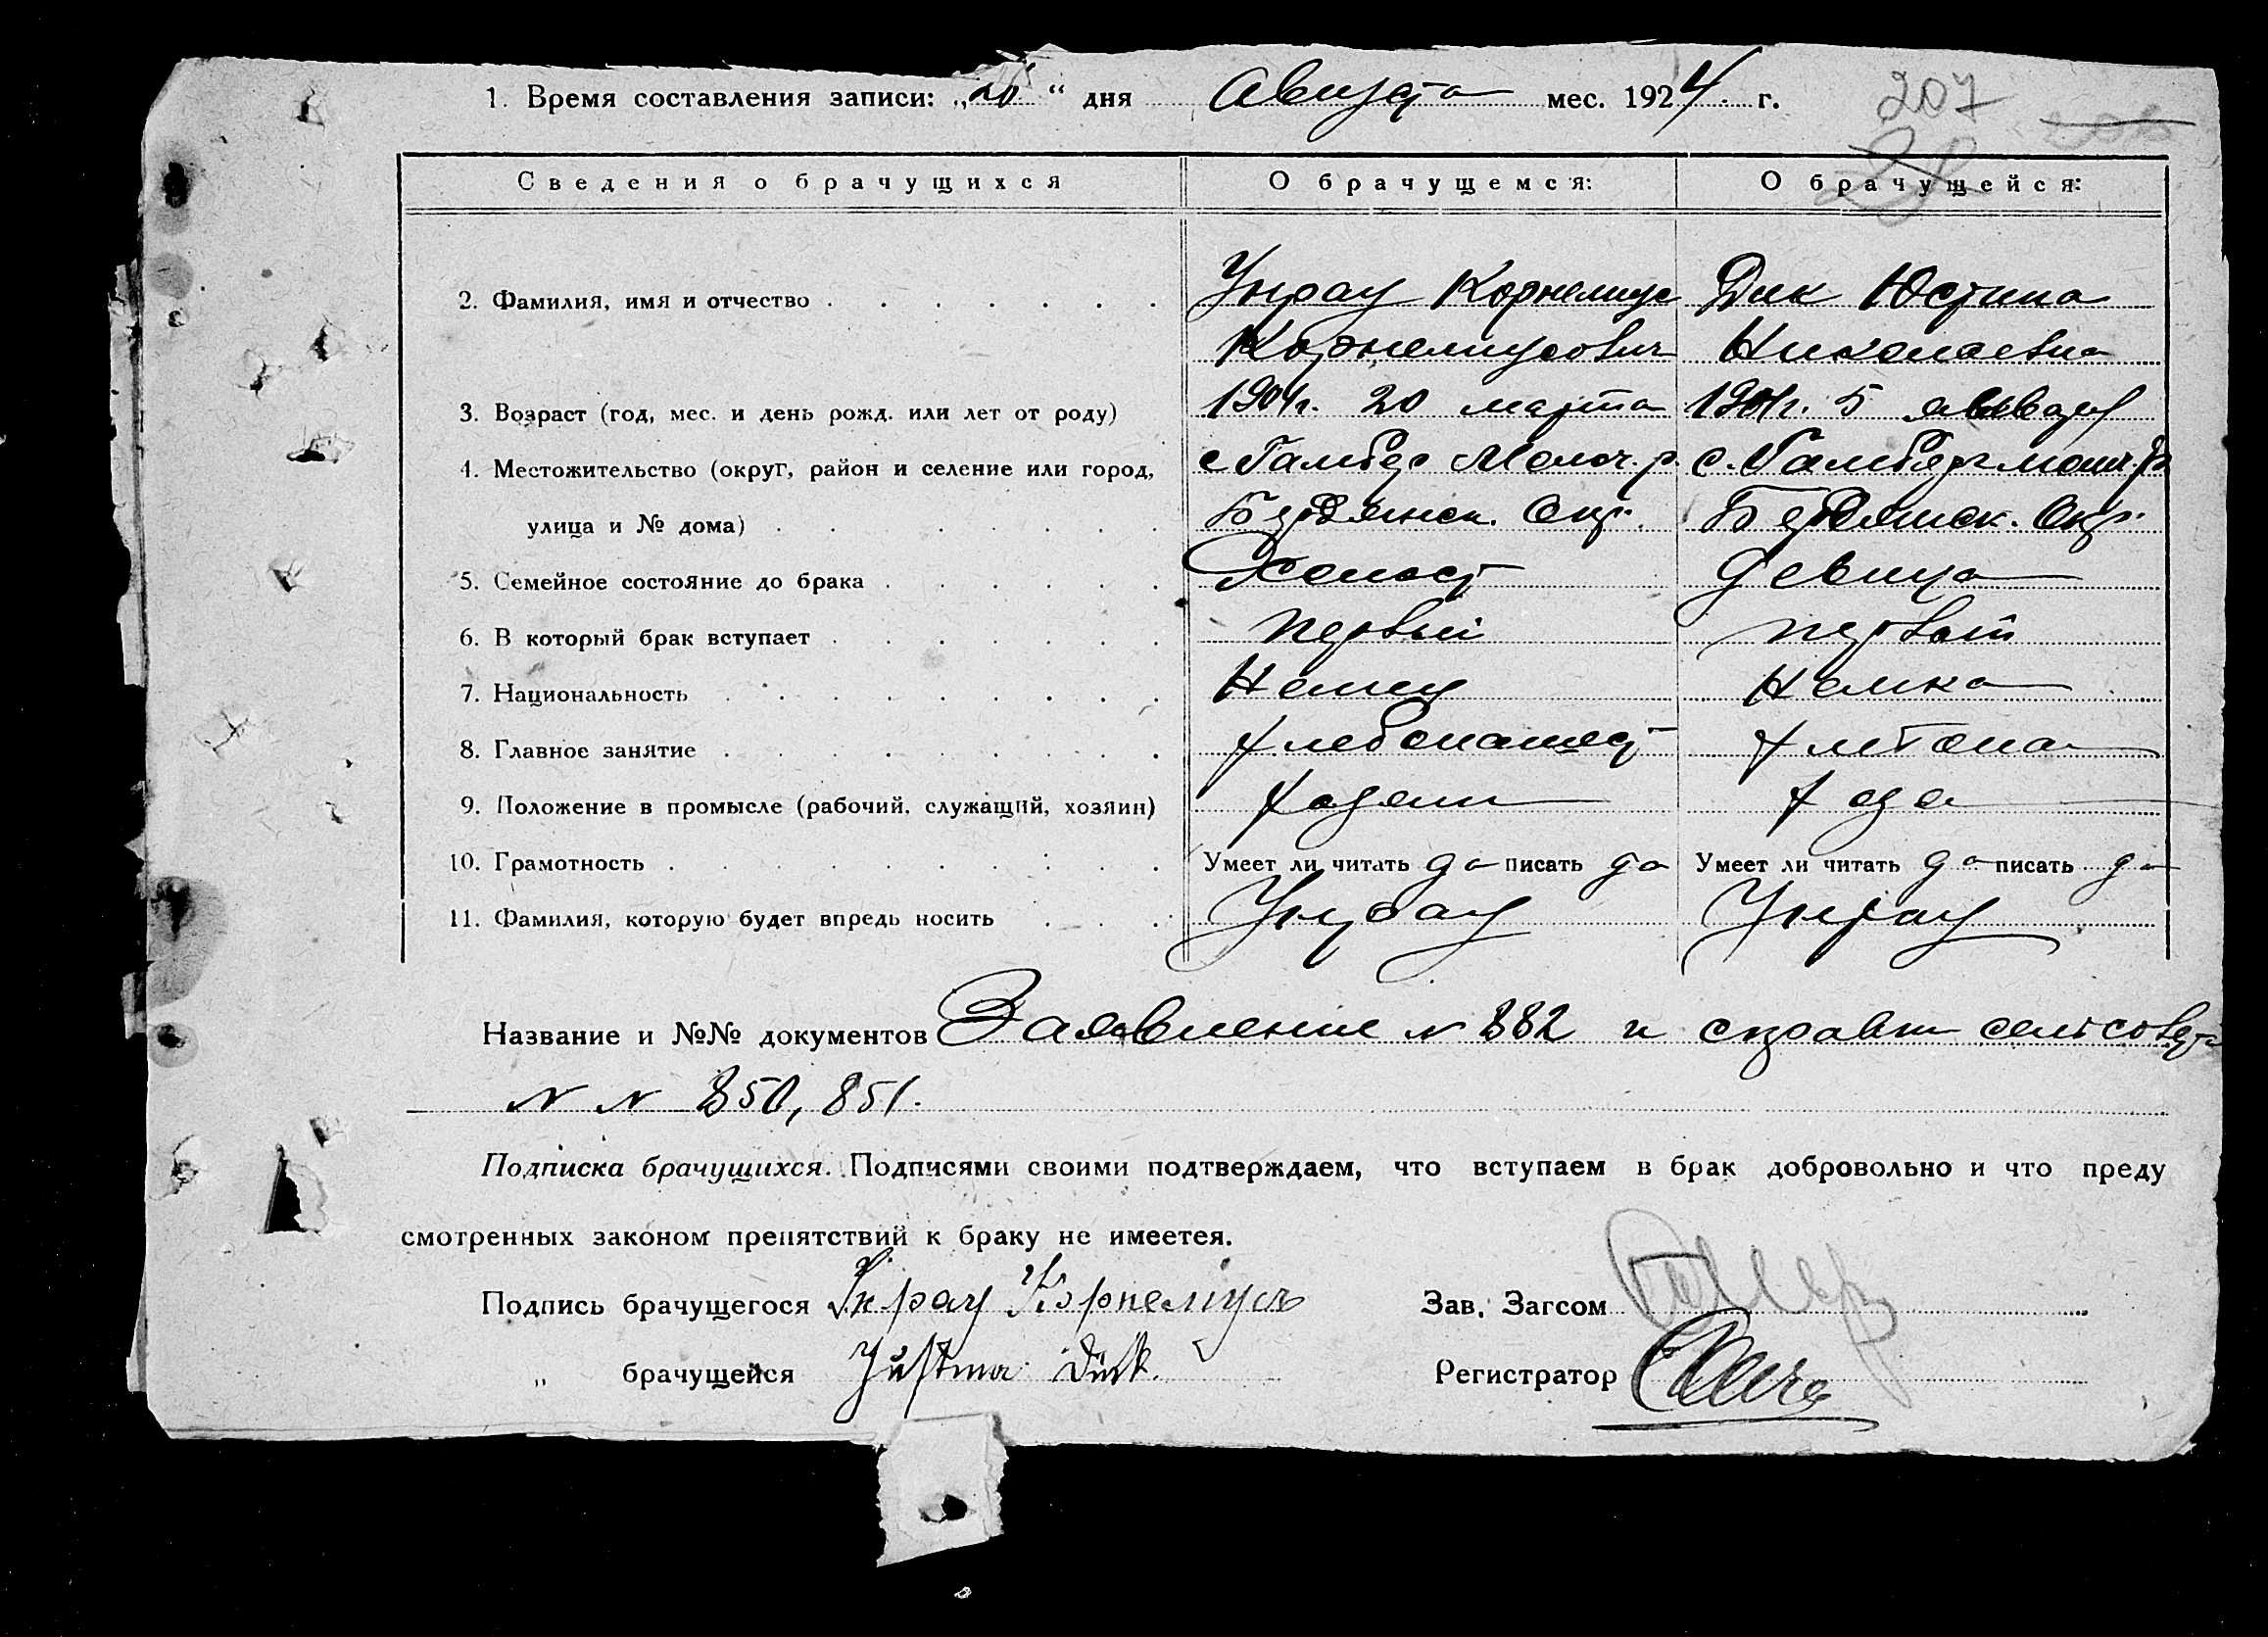 1. Время составления записи: „26“ дня Августа мес. 1924 г. 207
Сведения о брачущихся О брачущемся: О брачущейся:
2. Фамилия, имя и отчество Унрау Корнелиус Дик Юстина
Корнелиусович Николаевна
3. Возраст (год, мес. и день рожд. или лет от роду) 1904г. 20 марта 1904г. 5 января
4. Местожительство (округ, район и селение или город, с Гамберг Молоч. р. с. Гамберг Молоч. р
улица и № дома) Бердянск. Окр. Бердянск. Окр.
5. Семейное состояние до брака Холост девица
6. В который брак вступает первый первый
7. Национальность Немец Немка
8. Главное занятие хлебопашест хлебопа
9. Положение в промысле (рабочий, служащий, хозяин) хозяин хозя
10. Грамотность Умеет ли читать да писать да Умеет ли читать да писать да
11. Фамилия, которую будет впредь носить Унрау Унрау
Название и №№ документов Заявление N 882 и справки сельсовета
N N 850, 851.
Подписка брачущихся. Подписями своими подтверждаем, что вступаем в брак добровольно и что преду
смотренных законом препятствий к браку не имеетея.
Подпись брачущегося Унрау Корнелиусъ Зав. Загсом
„ брачущейся Justina Dück. Регистратор